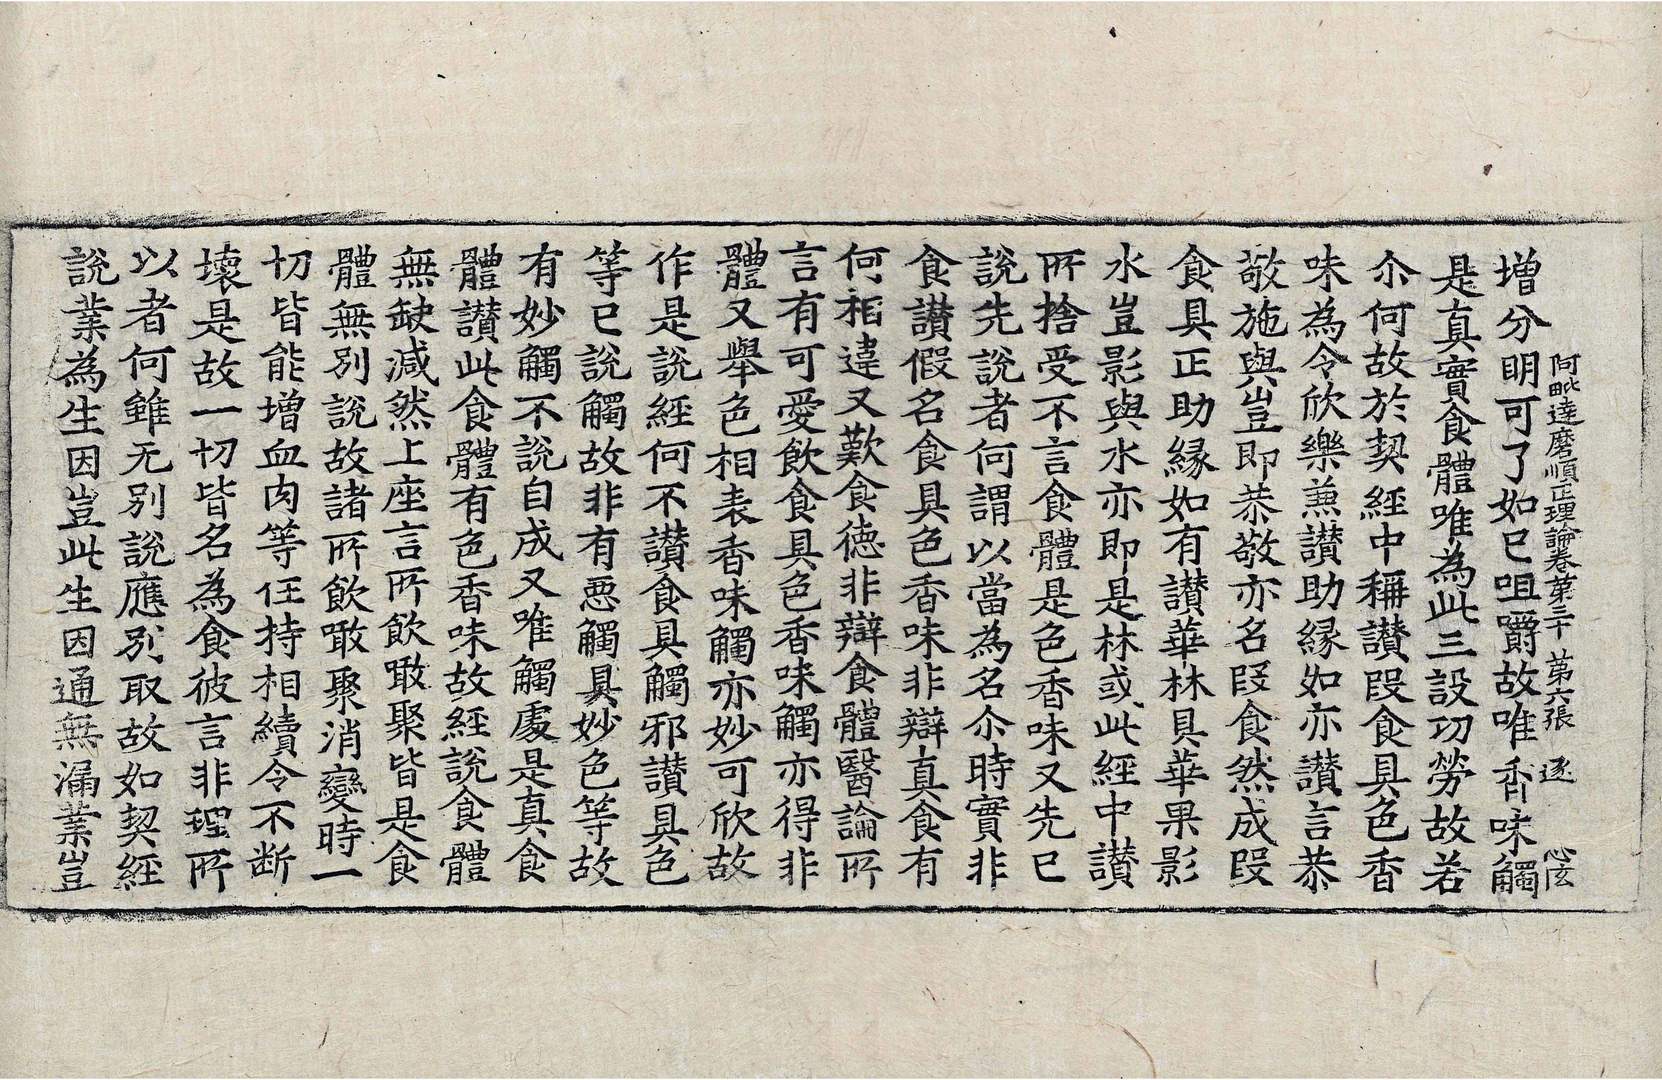 阿毗達磨順正理論卷第三十 第六張 逐 心玄
增分明可了如已咀嚼故唯香味觸
是真實食體唯為此三設功勞故若
尒何故於契經中稱讃段食具色香
味為令欣樂兼讃助緣如亦讃言恭
敬施與豈即恭敬亦名段食然成段
食具正助緣如有讃華林具華果影
水豈影與水亦即是林或此經中讃
所捨受不言食體是色香味又先已
說先說者何謂以當為名尒時實非
食讃假名食食具色香味非辯真食有
何相違又歎食德非辯食體醫論所
言有可愛飲食具色香味觸亦得非
體又舉色相表香味觸亦妙可欣故
作是說經何不讃食具觸邪讃具色
等已說觸故非有惡觸具妙色等故
有妙觸不說自成又唯觸處是真食
體讃此食體有色香味故經說食體
無缺減然上座言所飲噉聚皆是食
體無別說故諸所飲噉聚消變時一
切皆能增血肉等任持相續令不斷
壞是故一切皆名為食彼言非理所
以者何雖无別說應別取故如契經
說業為生因豈此生因通無漏業豈